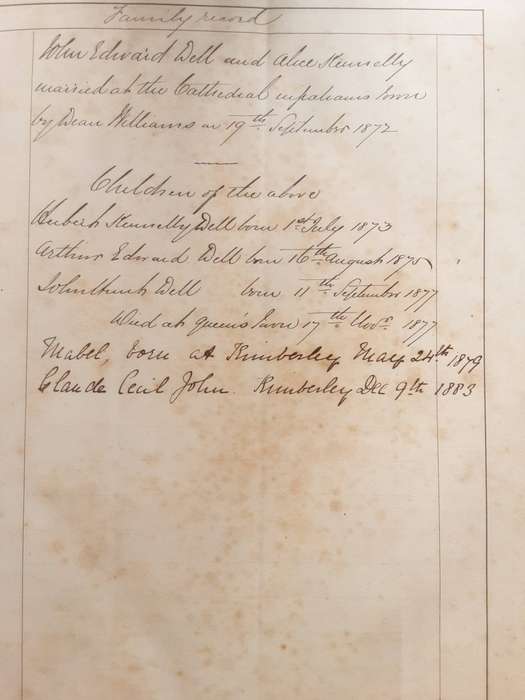 Family record
John Edward Dell and Alice Kennelly
married at the Cathedral Grahams Town
by Dean Williams on 19th September 1872
Children of the above
Hubert Kennelly Dell born 1st July 1873
Arthur Edward Dell born 16th August 1875
John Dell born 11th September 1877
Died at Queen's Town 17th Novr. 1877
Mabel, born at Kimberley May 24th 1879
Claude Cecil John. Kimberley Dec 9th 1883